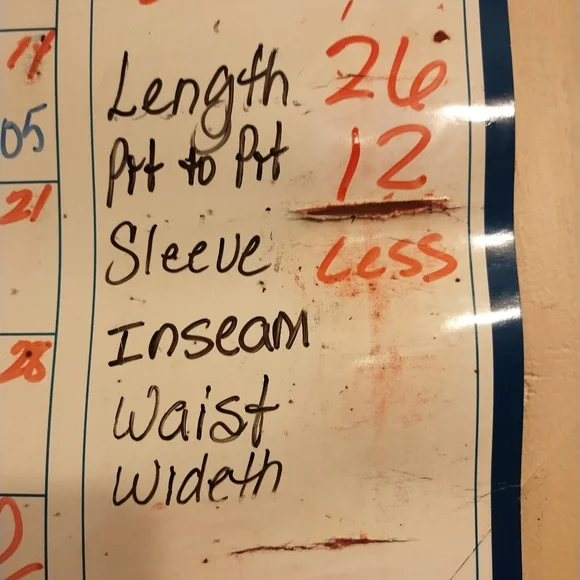 11
05
21
28
Length 26
Prt to Prt 12
Sleeve Less
Inseam
Waist
Wideth